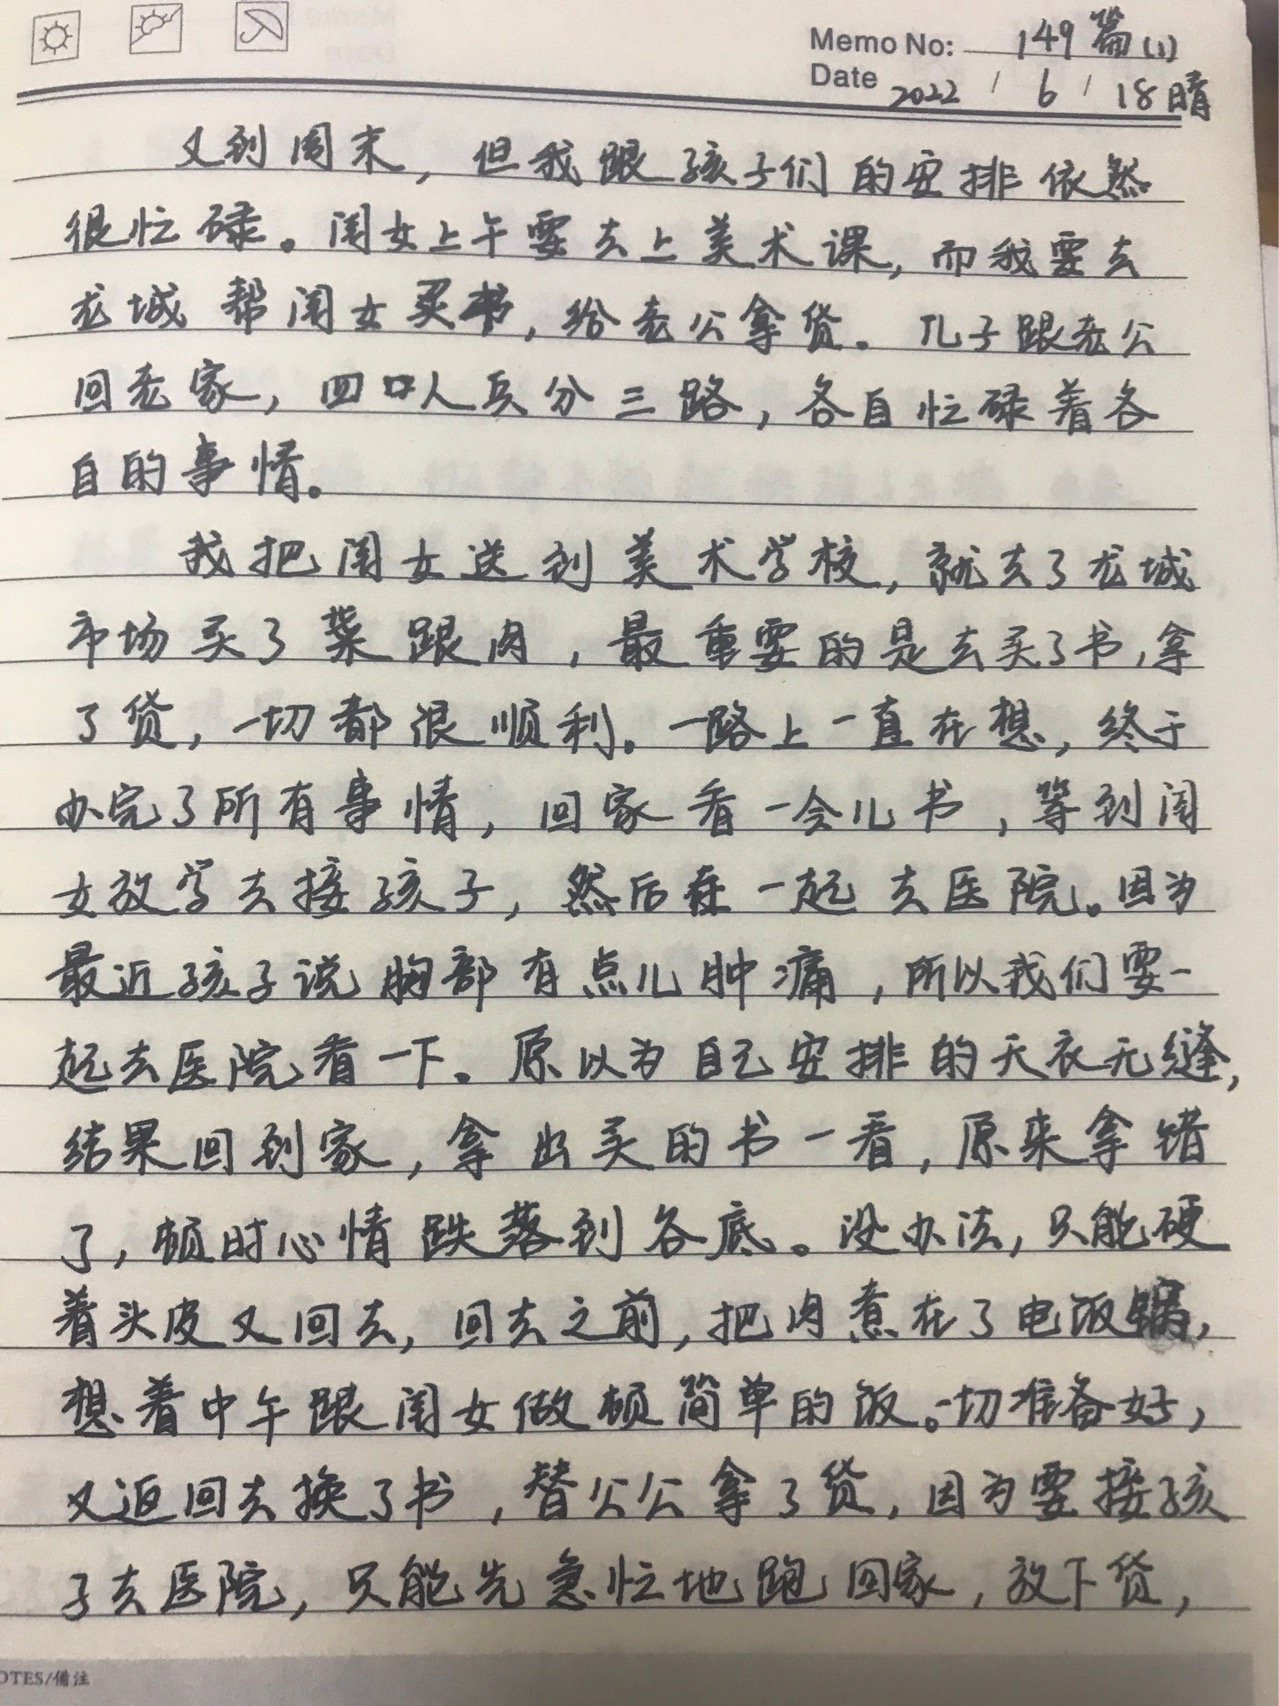 Memo No: 149篇(1)
Date 2022 / 6 / 18晴
又到周末，但我跟孩子们的安排依然
很忙碌。闺女上午要去上美术课，而我要去
龙城帮闺女买书，给老公拿货。儿子跟老公
回老家，四口人兵分三路，各自忙碌着各
自的事情。
我把闺女送到美术学校，就去了龙城
市场买了菜跟肉，最重要的是去买了书，拿
了货，一切都很顺利。一路上一直在想，终于
办完了所有事情，回家看一会儿书，等到闺
女放学去接孩子，然后在一起去医院。因为
最近孩子说胸部有点儿肿痛，所以我们要一
起去医院看一下。原以为自己安排的天衣无缝，
结果回到家，拿出买的书一看，原来拿错
了，顿时心情跌落到谷底。没办法，只能硬
着头皮又回去，回去之前，把肉煮在了电饭锅，
想着中午跟闺女做顿简单的饭。一切准备好，
又返回去换了书，替公公拿了货，因为要接孩
子去医院，只能先急忙地跑回家，放下货，
OTES/备注